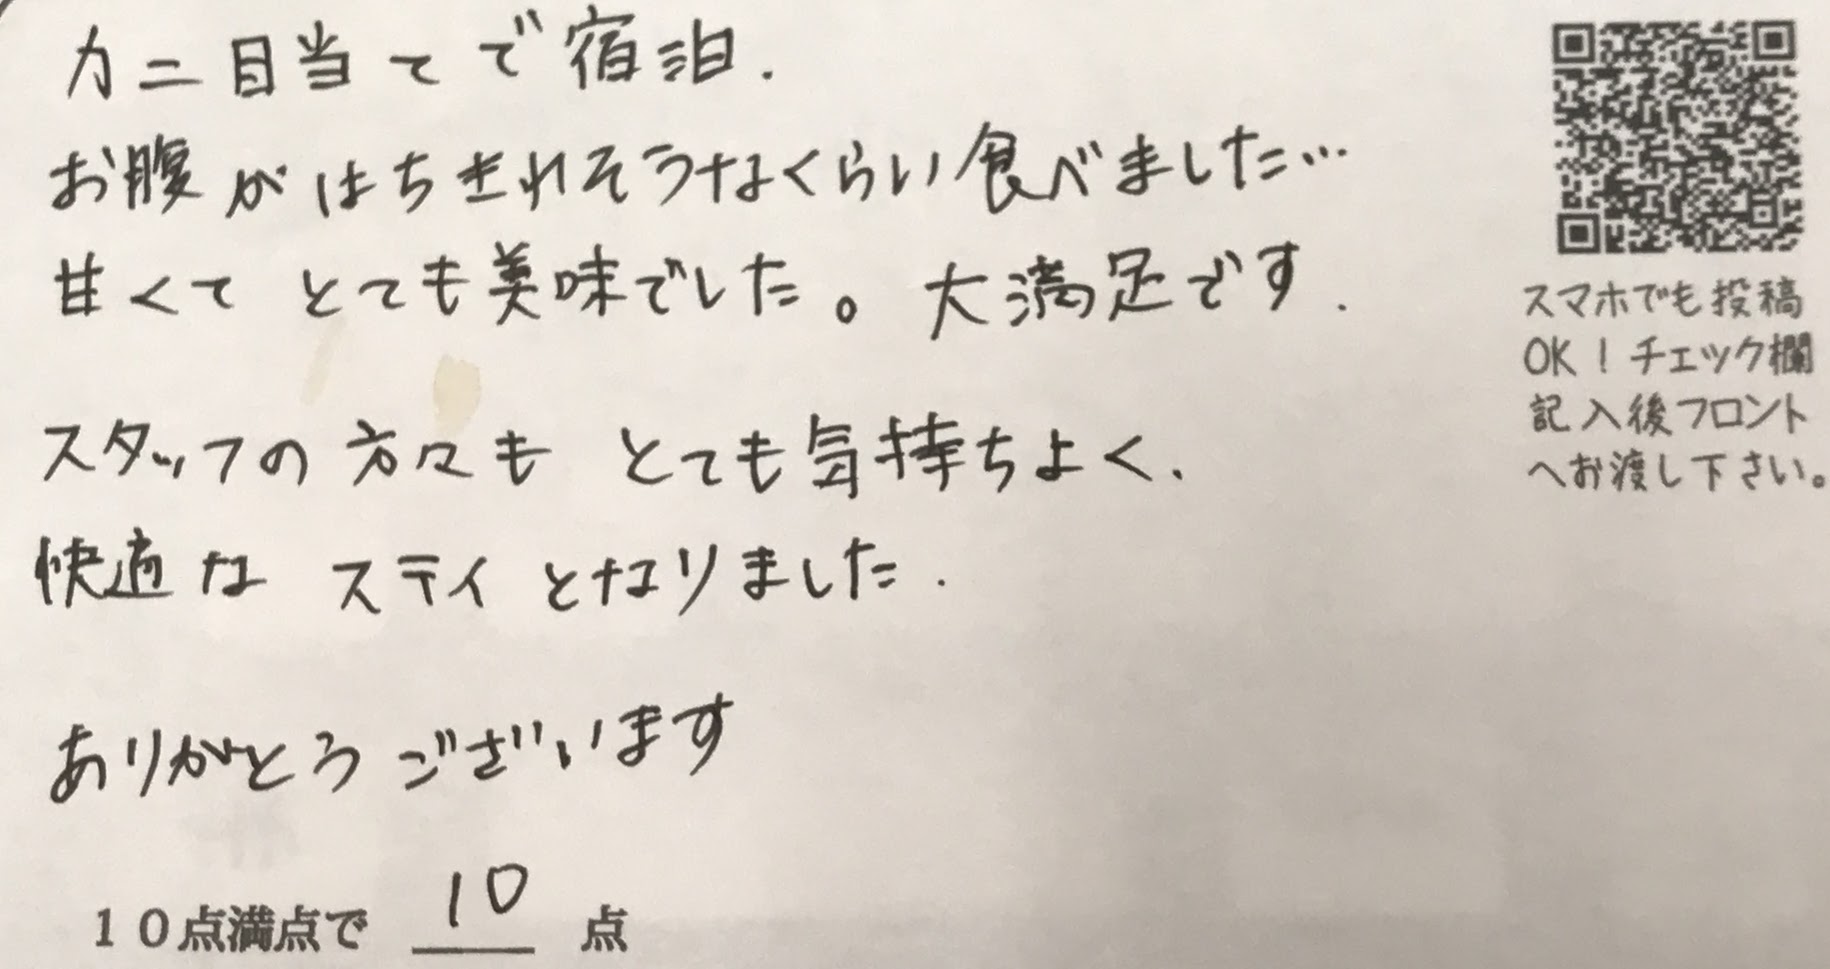 カニ目当てで宿泊.
お腹がはちきれそうなくらい食べました…
甘くてとても美味でした。大満足です.
スタッフの方々もとても気持ちよく、
快適なステイとなりました.
ありがとうございます
10点満点で 10 点
スマホでも投稿
OK！チェック欄
記入後フロント
へお渡し下さい。